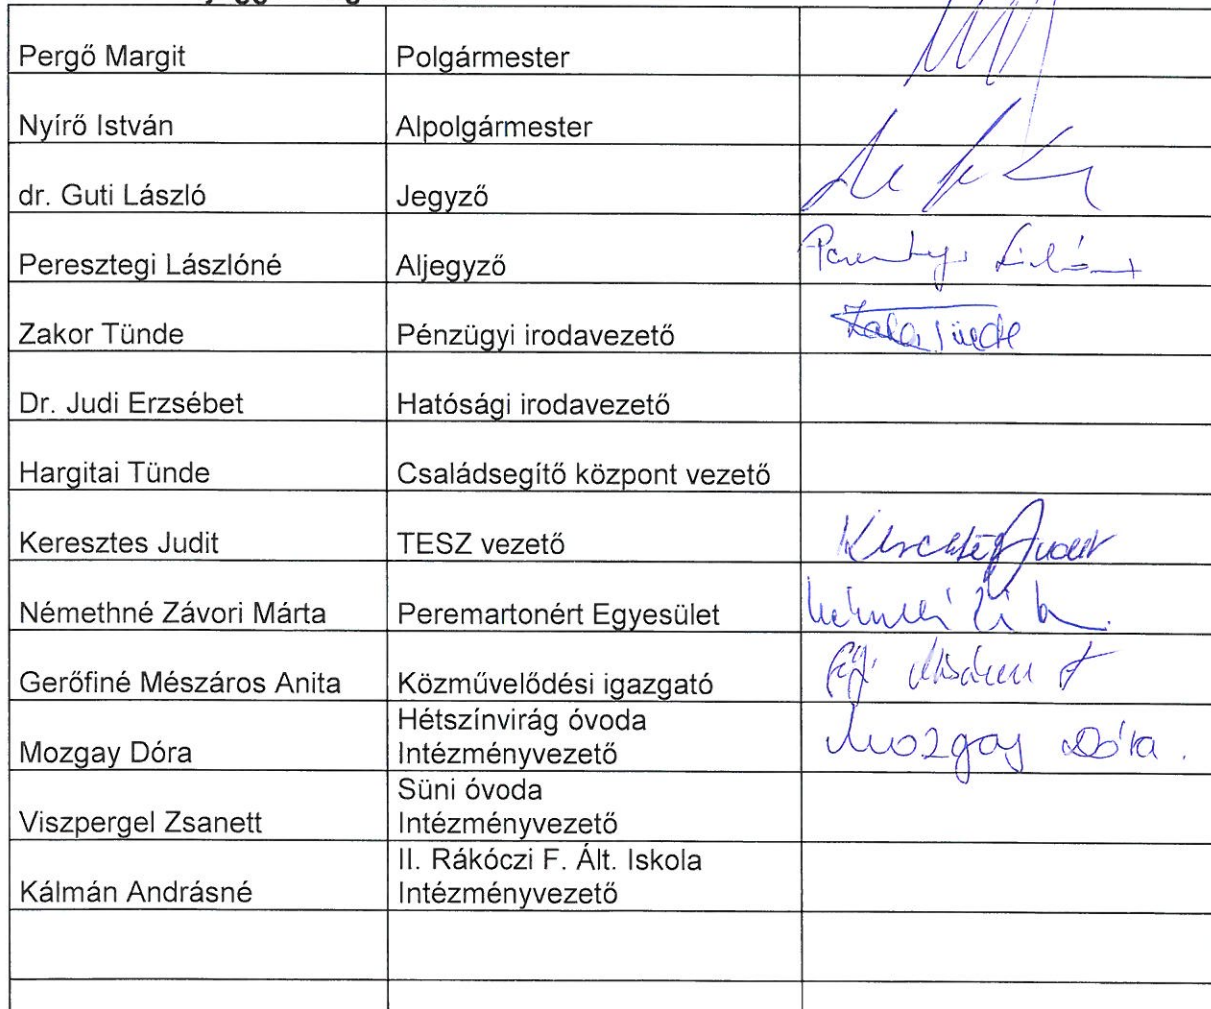 Pergő Margit Polgármester
Nyírő István Alpolgármester
dr. Guti László Jegyző
Peresztegi Lászlóné Aljegyző
Zakor Tünde Pénzügyi irodavezető
Dr. Judi Erzsébet Hatósági irodavezető
Hargitai Tünde Családsegítő központ vezető
Keresztes Judit TESZ vezető Keresztes Judit
Némethné Závori Márta Peremartonért Egyesület
Gerőfiné Mészáros Anita Közművelődési igazgató
Mozgay Dóra Hétszínvirág óvoda Mozgay Dóra.
Intézményvezető
Viszpergel Zsanett Süni óvoda
Intézményvezető
Kálmán Andrásné II. Rákóczi F. Ált. Iskola
Intézményvezető